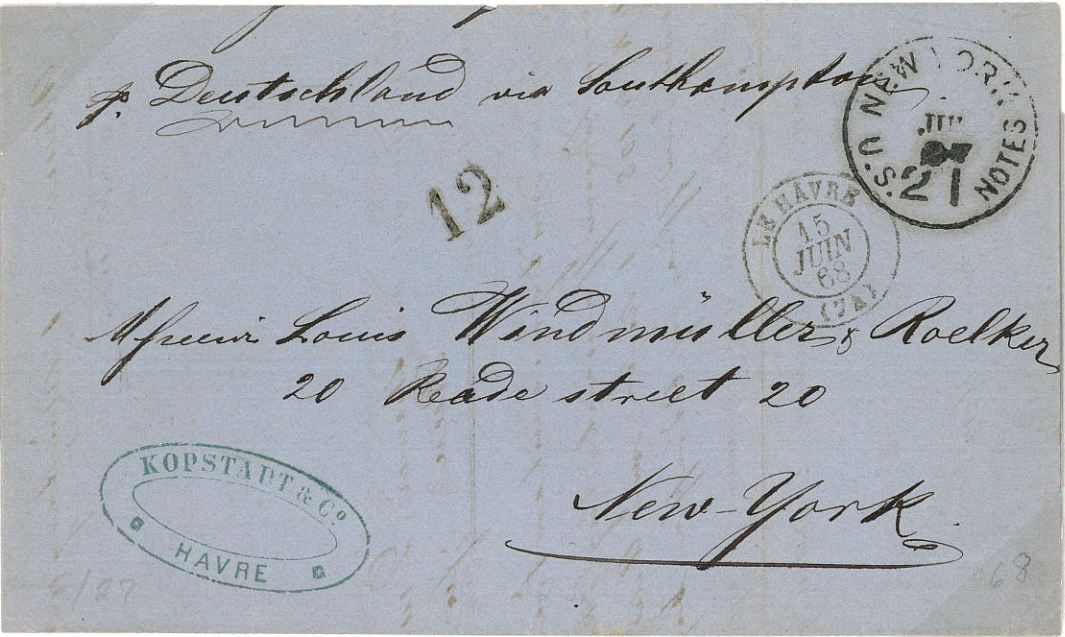 p. Deutschland via Southampton
NEW YORK
21
U.S. NOTES
12
LE HAVRE
15
JUIN
68
Louis Windmüller & Roelker
20 Reade street 20
New-York
KOPSTADT & Cº
HAVRE
68